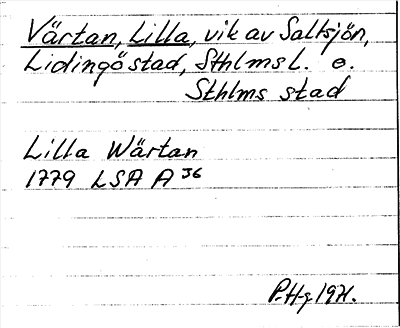 Värtan, Lilla, vik av Saltsjön,
Lidingö stad, Sthlms l. o.
Sthlms stad
Lilla Wärtan
1779 LSA A 36
P.Hg 1971.